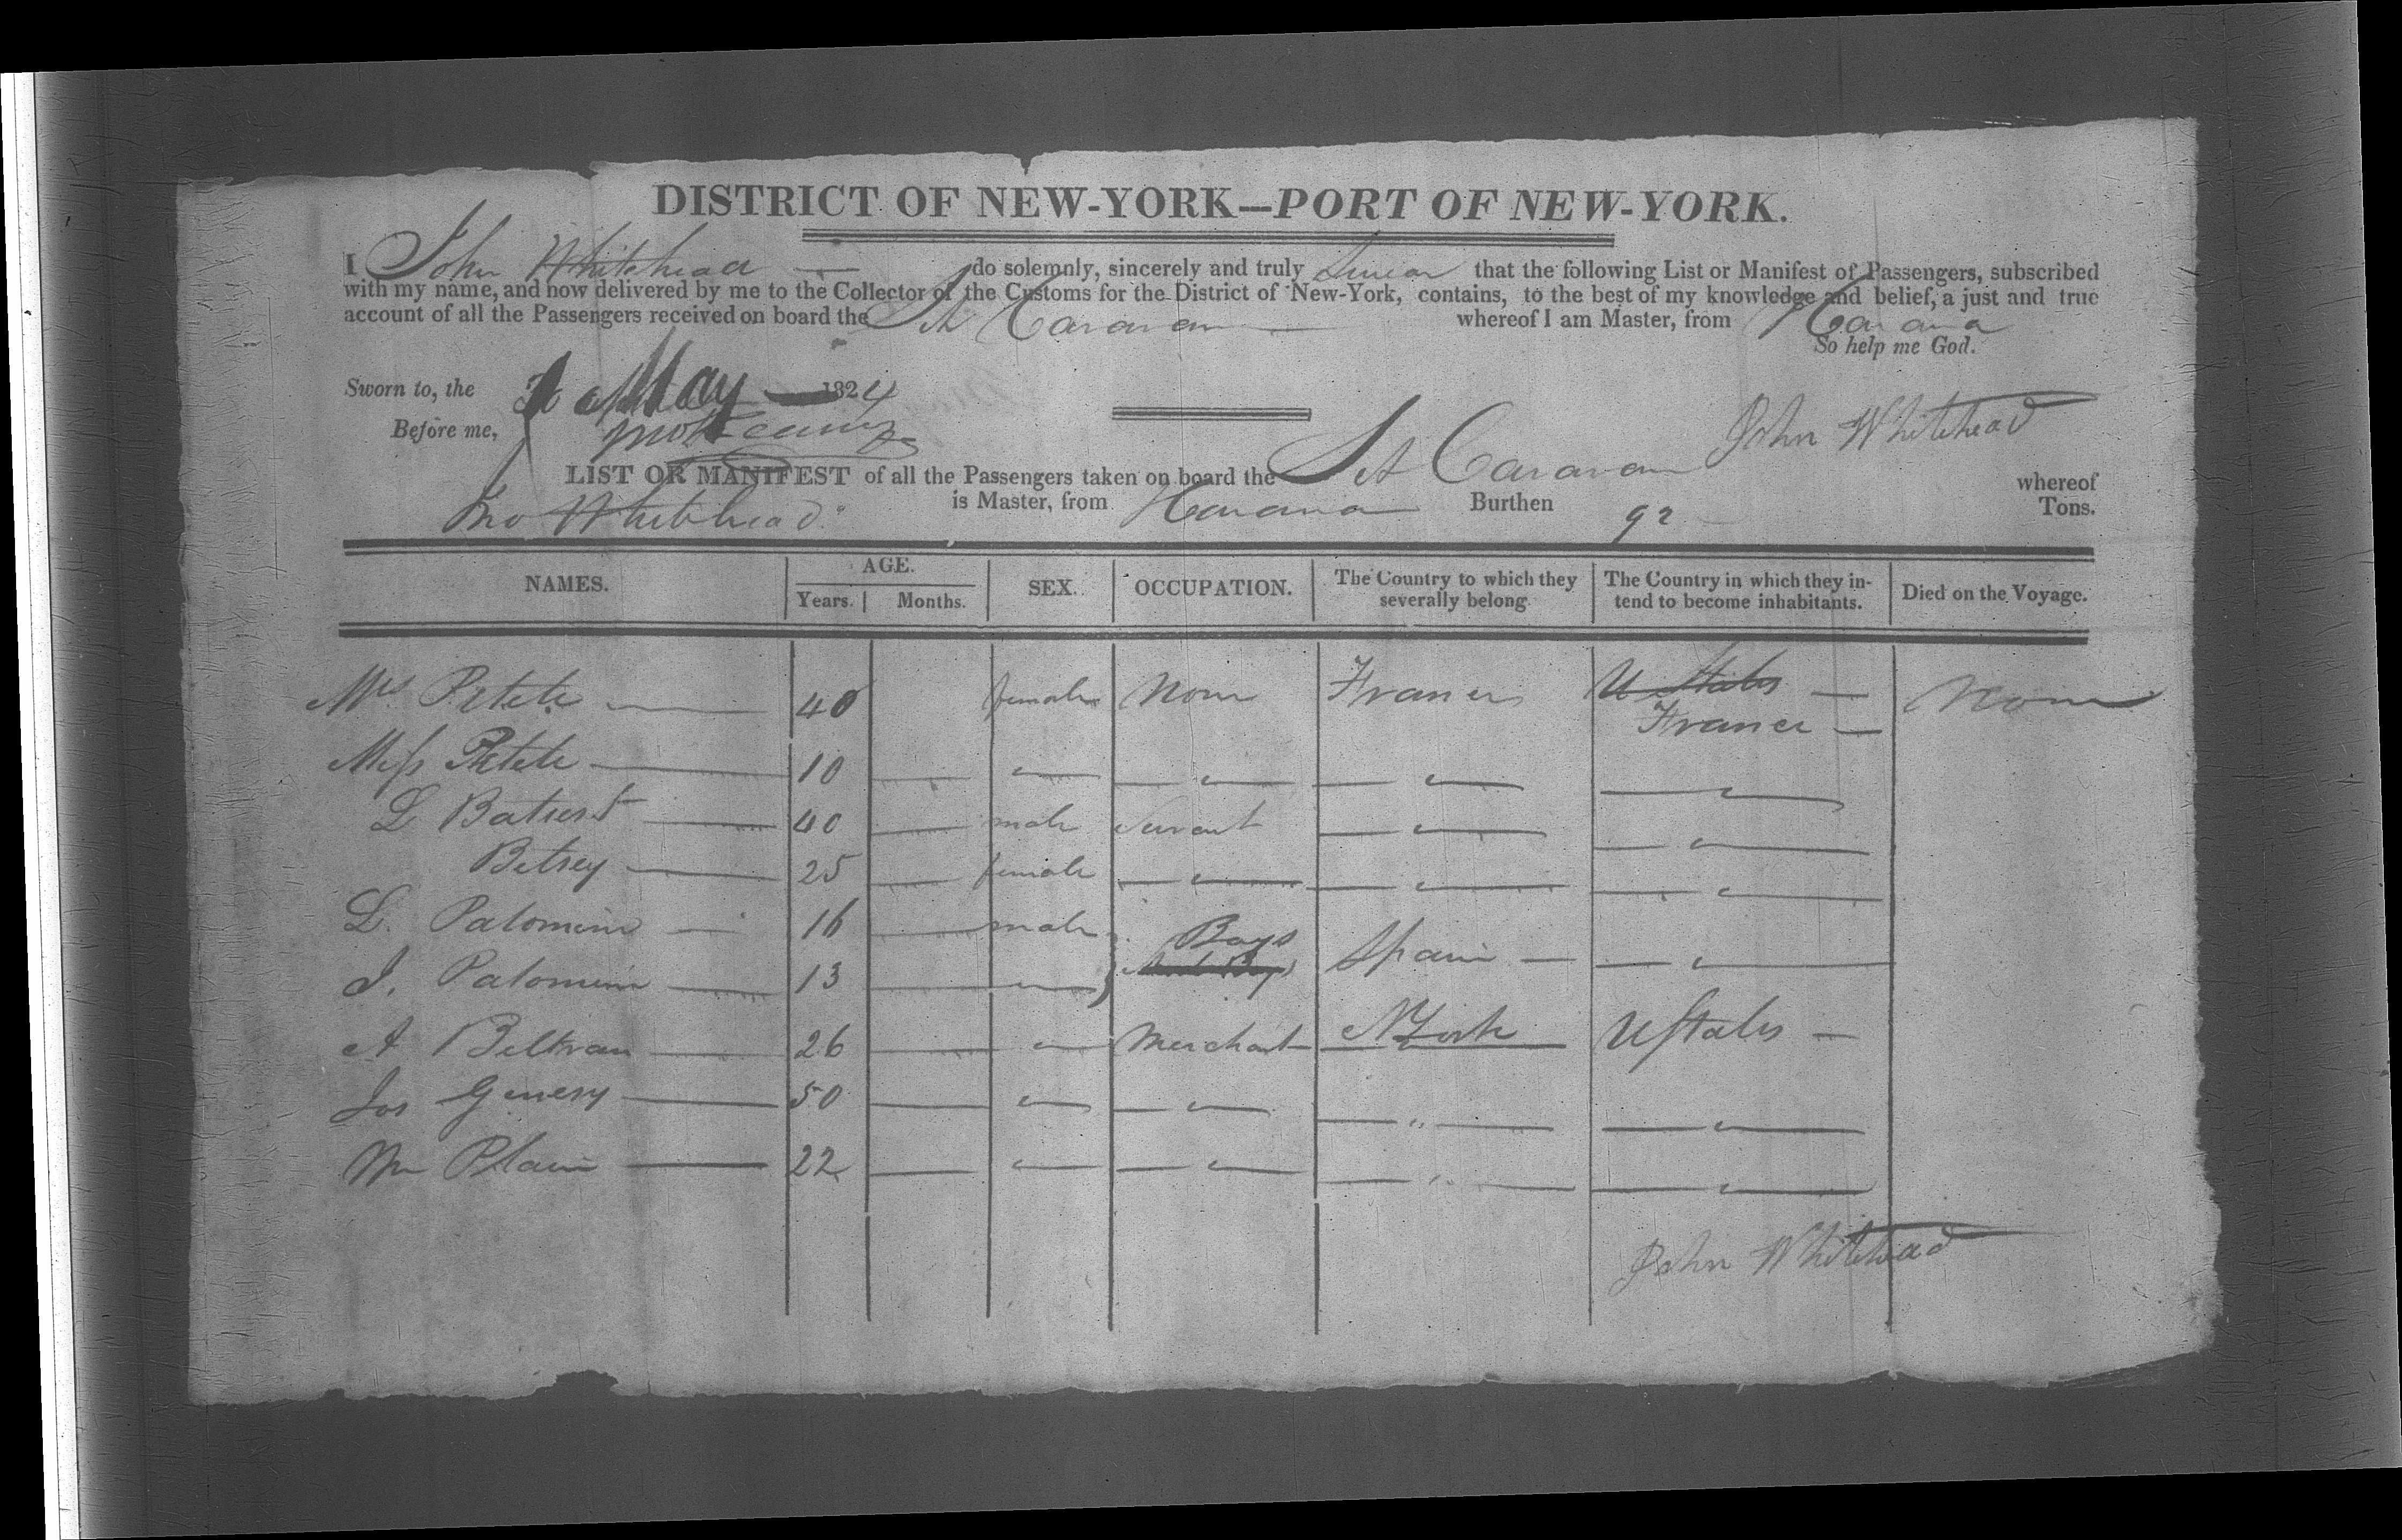 DISTRICT OF NEW-YORK—PORT OF NEW-YORK.
I John Whitehead — do solemnly, sincerely and truly Swear that the following List or Manifest of Passengers, subscribed
with my name, and now delivered by me to the Collector of the Customs for the District of New-York, contains, to the best of my knowledge and belief, a just and true
account of all the Passengers received on board the Caravan — whereof I am Master, from Havana
So help me God.
Sworn to, the May 1824
Before me,
John Whitehead
LIST OR MANIFEST of all the Passengers taken on board the Caravan whereof
Jno Whitehead is Master, from Havana Burthen 92 Tons.
NAMES. AGE. Years. Months. SEX. OCCUPATION. The Country to which they severally belong. The Country in which they intend to become inhabitants. Died on the Voyage.
Mrs Petete — 40 female None France U States — None
France —
Miss Petete — 10 — " — " — " — "
L — 40 — male Servant — " — "
Betsey — 25 — female — " — " — "
L. Palomino — 16 — male Boys Spain — — "
J. Palomino — 13 — "
A Beltran — 26 — " Merchant N York UStates —
Jos — 50 — " — " — " — "
Plain — 22 — " — " — " — "
John Whitehead